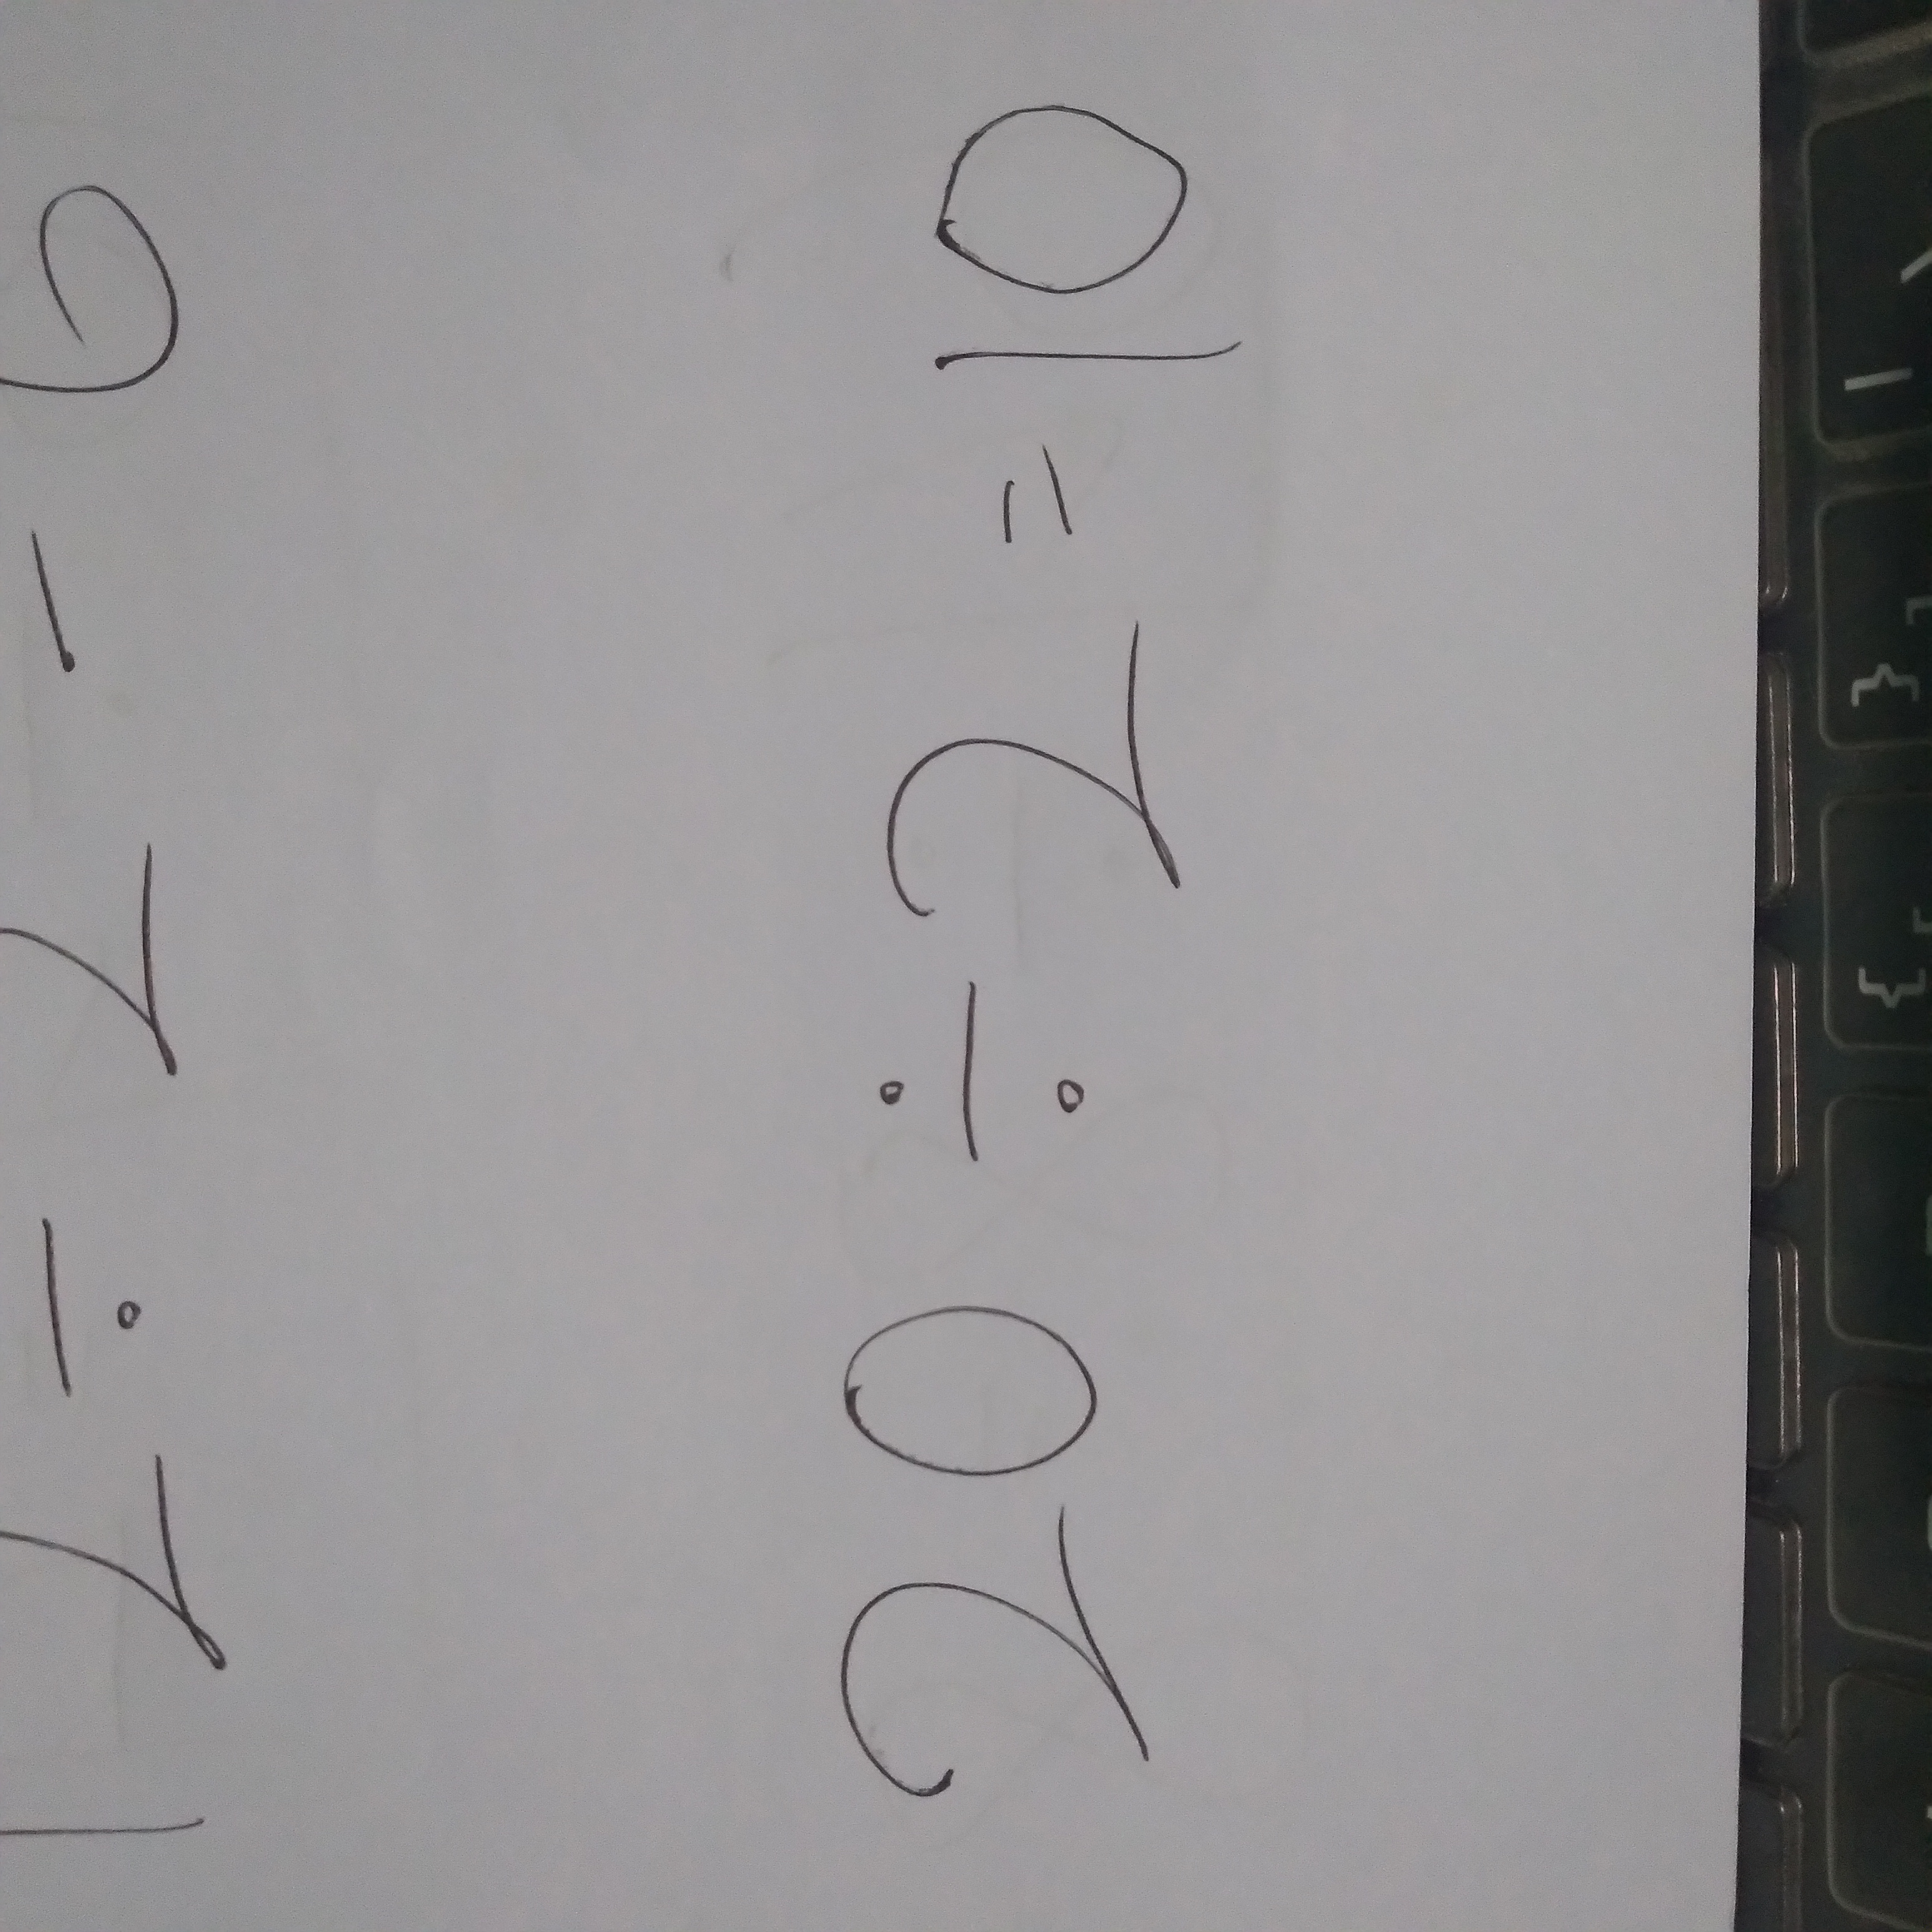 12 ÷ 2 = 6
20 ÷ 2 = 10
{ } |
[ ] \